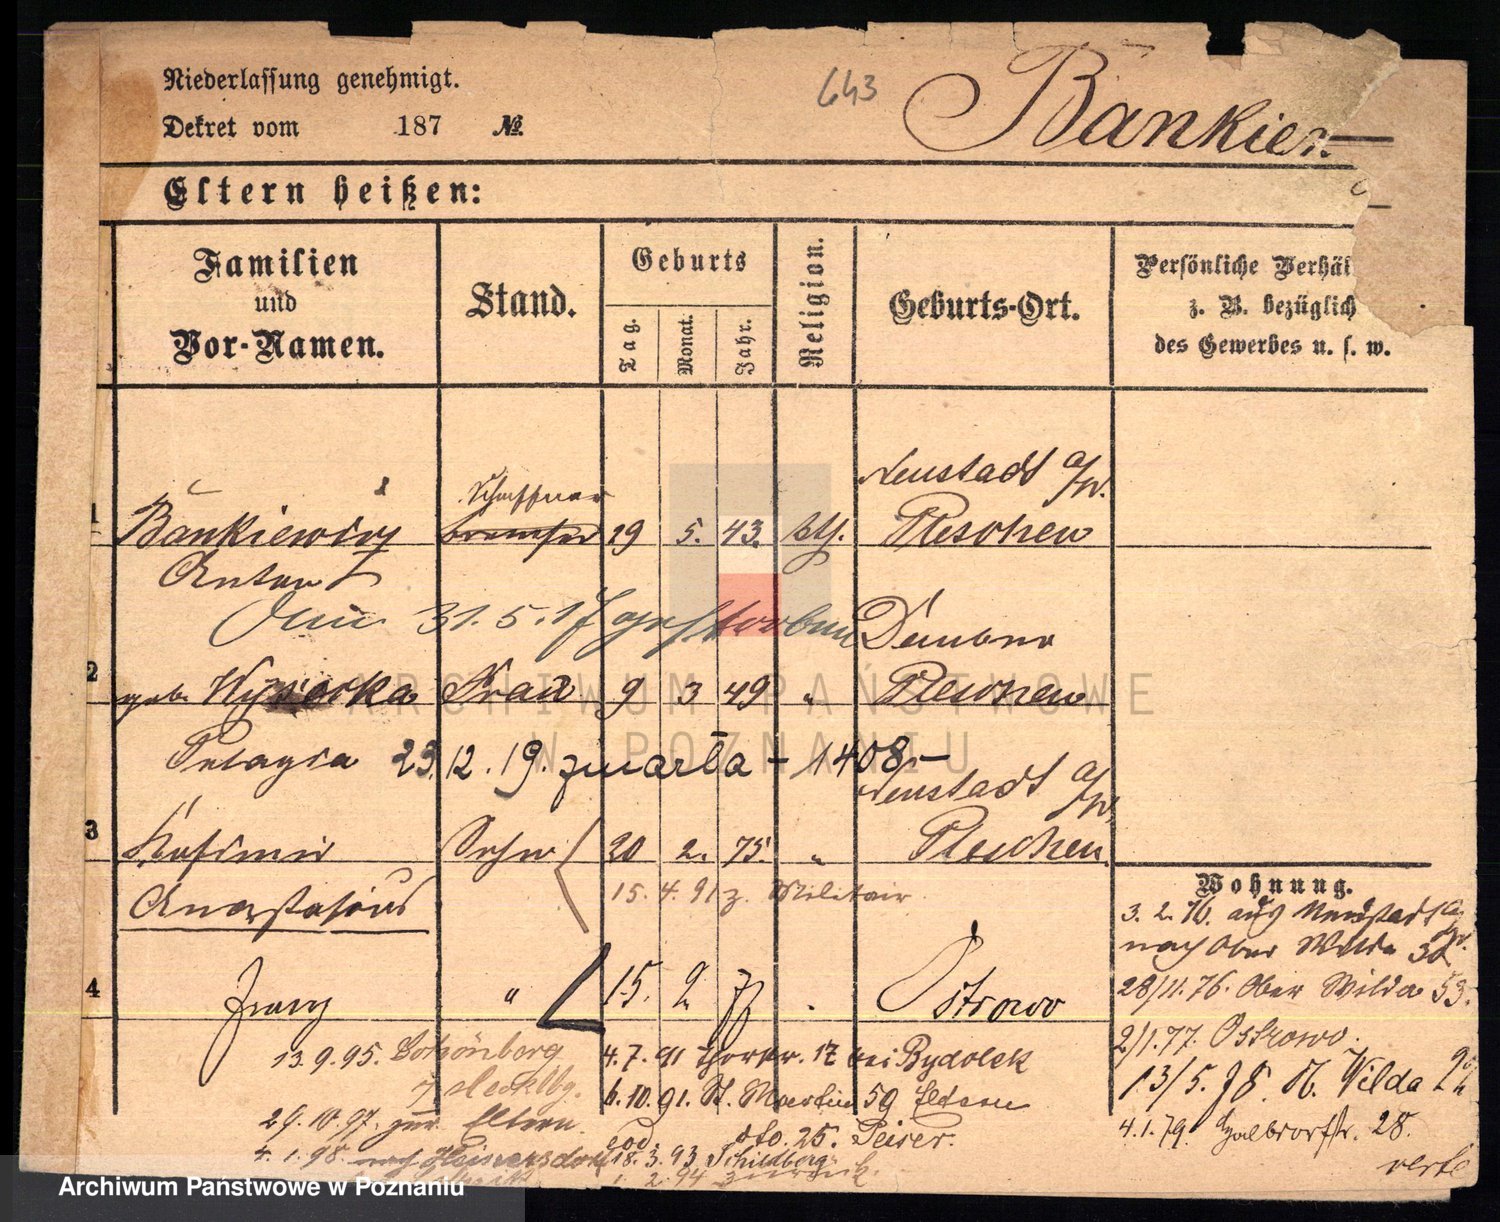 Niederlassung genehmigt.
Dekret vom 187 №
643
Bänkiew
Eltern heißen:
Familien und Vor-Namen.
Stand.
Geburts
Tag.
Monat.
Jahr.
Religion.
Geburts-Ort.
Persönliche Verhäl
z. B. bezüglich
des Gewerbes u. s. w.
Neustadt a/W.
Schaffner
1 Bänkiewicz Bremser 29 5. 43. kth. Pleschen
Anton
31. 5. 17 gestorben
2 geb. Wysocka Frau 9 3 49 " Pleschen
Pelagia 23. 12. 19. zmarła - 1408 -
Neustadt a/W.
3 Kasimir Sohn 20 2. 75. " Pleschen.
Anastasius 15. 4. 91 z. Militair
4 Franz " 15. 2 77 Ostrowo
13. 9. 95. Schönberg
i/Mecklbg.
29. 10. 97. zur Eltern.
4. 1. 98. nach
4. 7. 91 17 bei Bydolek
6. 10. 91. St. Martin 59 Eltern
dto. 25. Peiser.
18. 3. 93 Schildberg
2. 94 zurück.
Wohnung.
3. 2. 76. aus Neustadt a/W.
nach Ober Wilda 32.
28/11. 76. Ober Wilda 53.
2/1. 77. Ostrowo.
13/5. 78. O. Wilda 22
4. 1. 79. Halbdorfstr. 28.
verte
ARCHIWUM PAŃSTWOWE
W POZNANIU
Archiwum Państwowe w Poznaniu